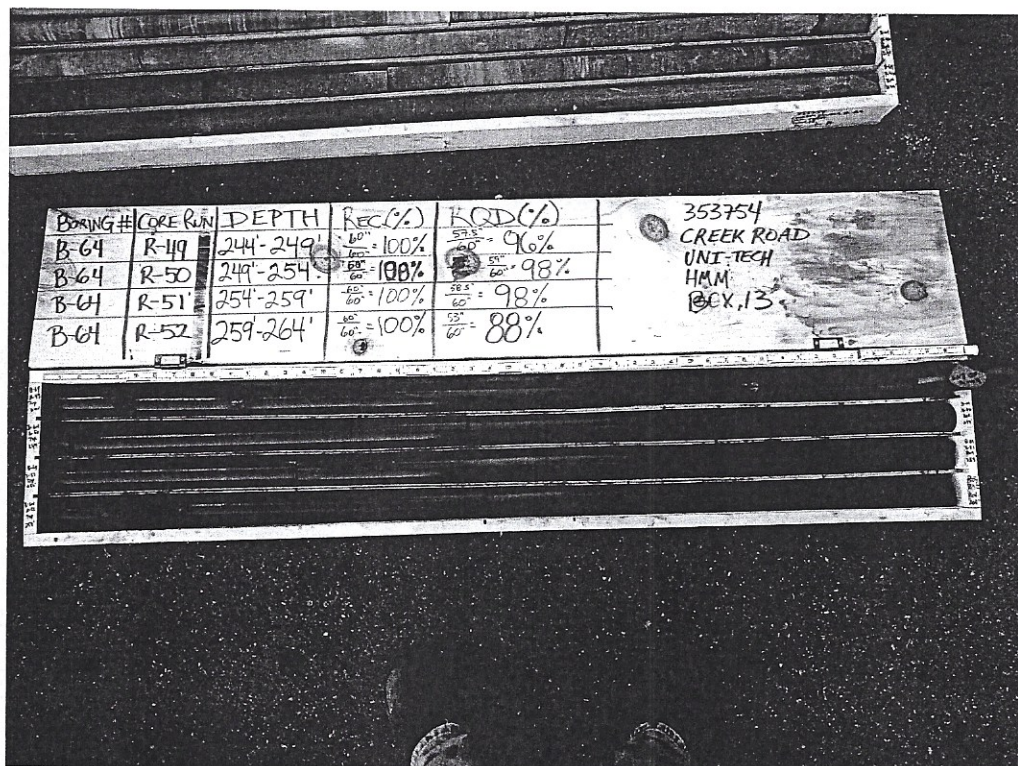 BORING # CORE RUN DEPTH REC(%) RQD(%)
B-64 R-49 244'-249' 60"/60" = 100% 57.5"/60" = 96%
B-64 R-50 249'-254' 60"/60" = 100% 59"/60" = 98%
B-64 R-51' 254'-259' 60"/60" = 100% 58.5"/60" = 98%
B-64 R-52 259'-264' 60"/60" = 100% 53"/60" = 88%
353754
CREEK ROAD
UNI-TECH
HMM
BOX, 13